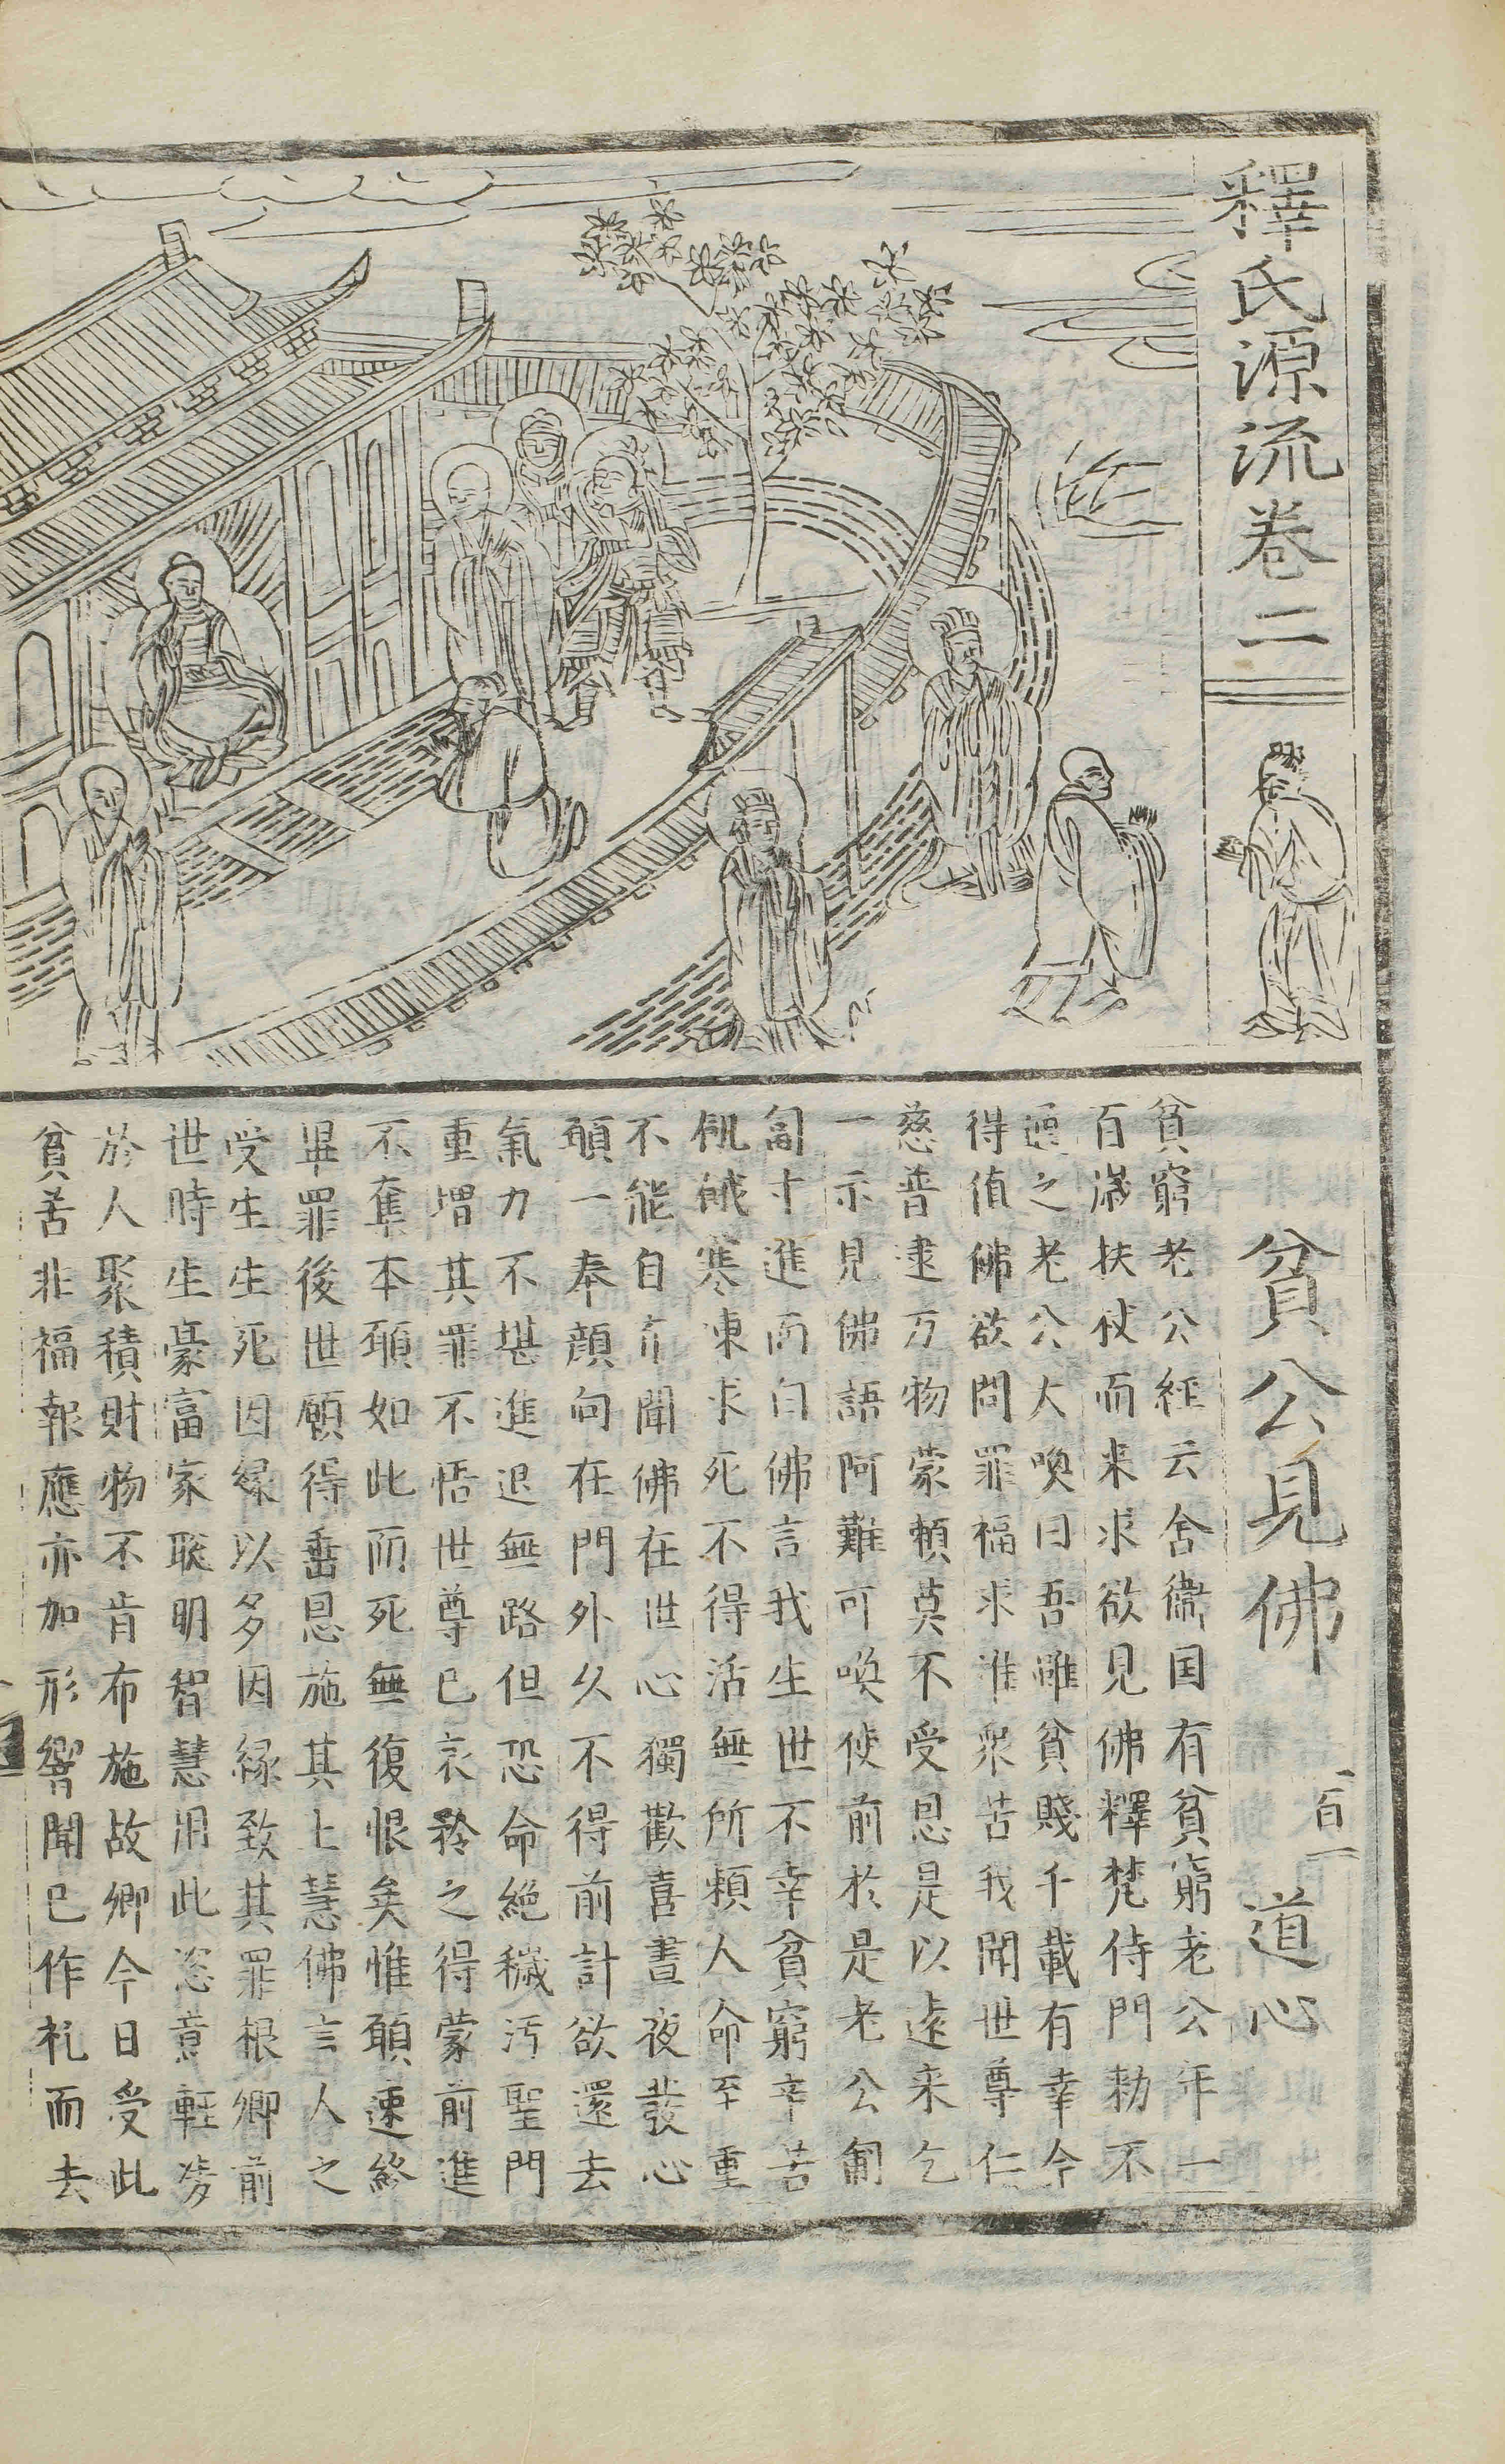 釋氏源流卷二
貧公見佛
一百一
道心
貧窮老公経云舍衞国有貧窮老公年一
百滿扶杖而来求欲見佛釋梵侍門勅不
通之老公大喚曰吾雖貧賤千載有幸今
得值佛欲問罪福求准衆苦我聞世尊仁
慈普逮万物蒙頼莫不受恩是以遠来乞
一示見佛語阿難可喚使前於是老公匍
匐寸進而白佛言我生世不幸貧窮辛苦
飢餓寒凍求死不得活無所頼人命至重
不能自亣聞佛在世心獨歡喜晝夜發心
頋一奉顔向在門外久不得前計欲還去
氣力不堪進退無路但恐命絕穢污聖門
重増其罪不悟世尊已哀矜之得蒙前進
不奪本頋如此而死無復恨矣惟頋速終
畢罪後世願得垂恩施其上慧佛言人之
受生生死因緣以多因緣致其罪根卿前
世時生豪富家聦明智慧用此恣意輕凌
於人聚積財物不肯布施故卿今日受此
貧苦非福報應亦如形響聞已作礼而去